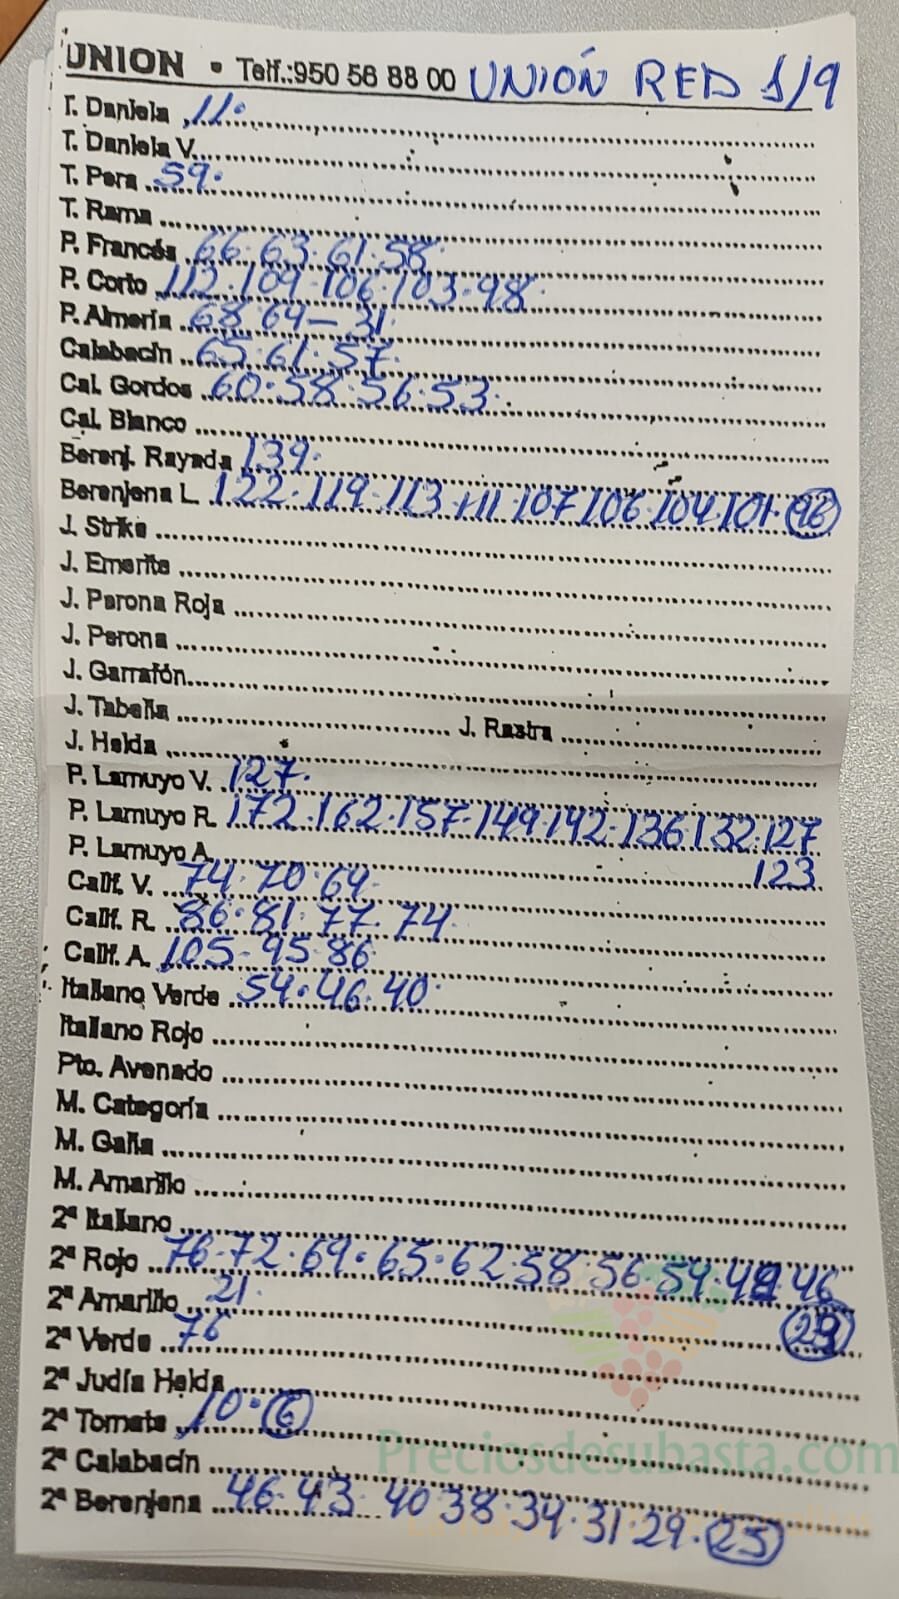 UNION • Telf.:950 56 88 00 UNIÓN RED 1/9
T. Daniela 11.
T. Daniela V.
T. Pera 59.
T. Rama
P. Francés 66.63.61.58.
P. Corto 112.109.106.103.98.
P. Almería 68 64 - 31.
Calabacín 65.61.57.
Cal. Gordos 60.58.56.53.
Cal. Blanco
Berenj. Rayada 139.
Berenjena L. 122.119.113.111.107.106.104.101.96
J. Strike
J. Emerite
J. Perona Roja
J. Perona
J. Garrafón
J. Tabella J. Rastra
J. Helda
P. Lamuyo V. 127.
P. Lamuyo R. 172.162.157.149.142.136.132.127
P. Lamuyo A. 123
Calif. V. 74.70.64.
Calif. R. 86.81.77.74.
Calif. A. 105-95 86.
Italiano Verde 54.46.40.
Italiano Rojo
Pto. Avenado
M. Categoría
M. Galia
M. Amarillo
2ª Italiano
2ª Rojo 76-72.69.65.62.58.56.54.48.46
2ª Amarillo 21.
2ª Verde 76
2ª Judía Helda
2ª Tomate 10.6
2ª Calabacín
Preciosdesubasta.com
2ª Berenjena 46.43.40 38.34.31.29.25